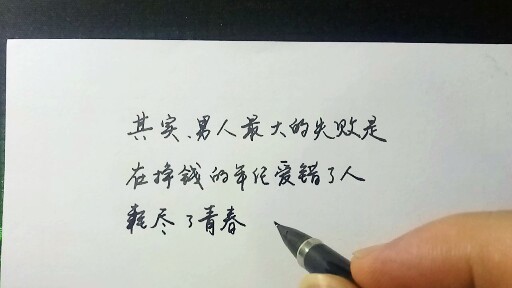 其实、男人最大的失败是
在挣钱的年纪爱错了人
耗尽了青春